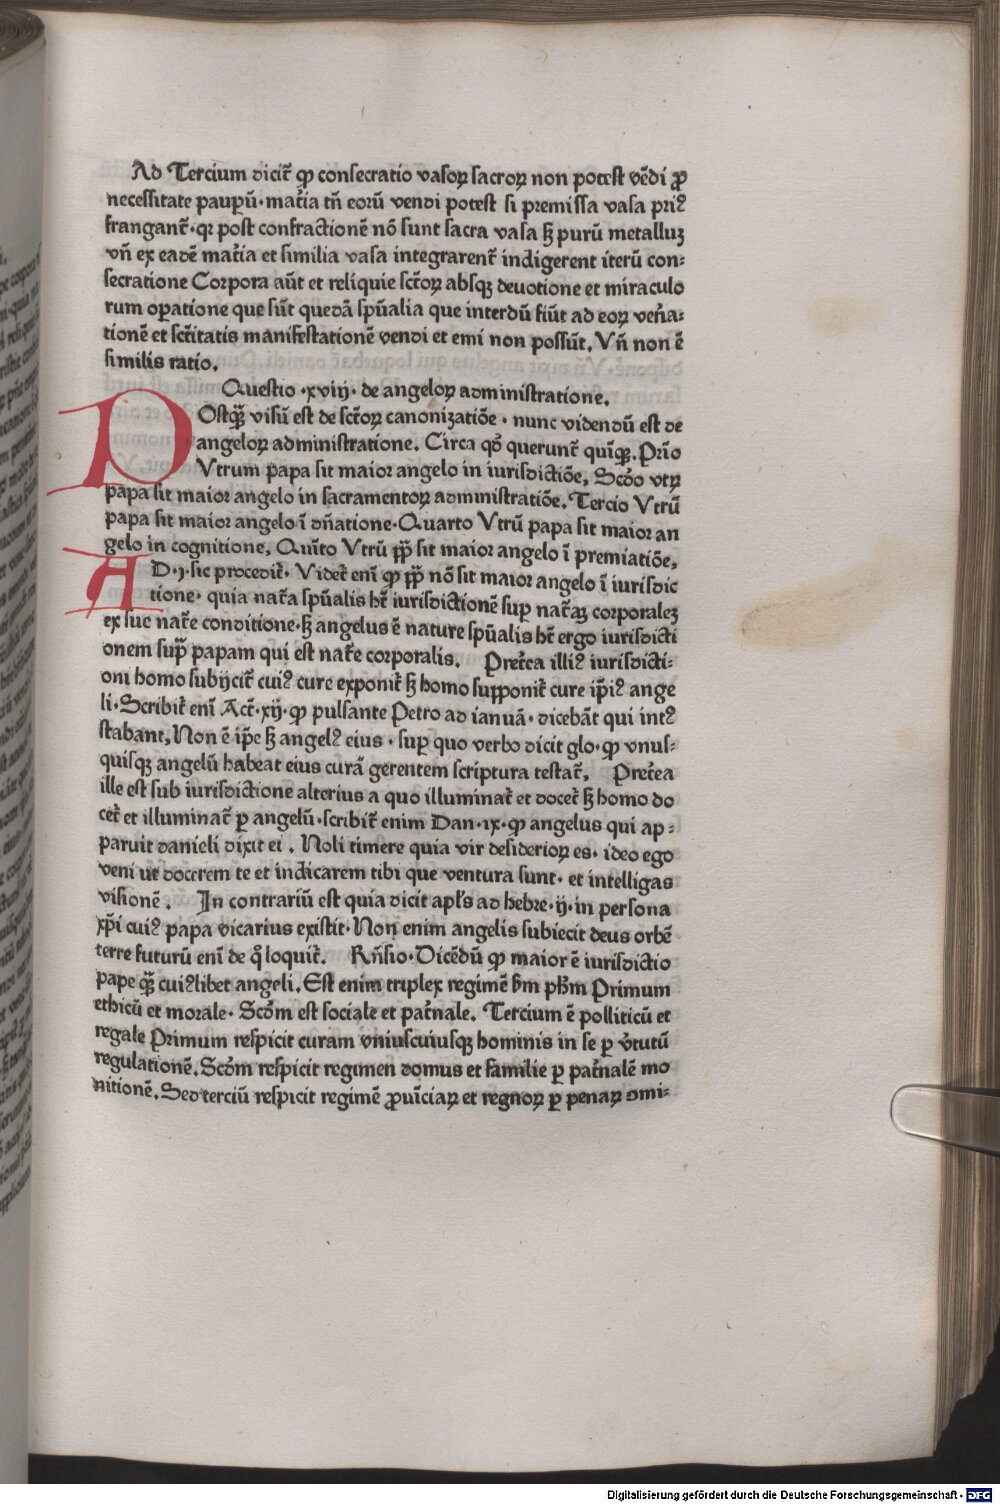 Ad Tercium dicit᷑ ꝙ consecratio vasoꝝ sacroꝝ non potest vēdi ꝓ
necessitate paupeꝝ̄·mat̄ia tn̄ eorū vendi potest si premissa vasa priꝰ
frangant᷑·qꝛ post confractionē nō sunt sacra vasa sꝫ purū metalluꝫ
vn̄ ex eadē mat̄ia et similia vasa integrarent᷑ indigerent iterū con-
secratione Corpora aūt et reliquie sc̄toꝝ absqꝫ deuotione et miraculo
rum oꝑatione que sūt quedā spūalia que interdū fiūt ad eoꝝ ven̄a-
tionē et sc̄titatis manifestationē vendi et emi non possūt. Vn̄ non ē
similis ratio.
Questio ·xviij· de angeloꝝ administratione.
POstqꝫ̄ visū est de sc̄toꝝ canonizatiōe · nunc videndū est de
angeloꝝ administratione. Circa qd̄ querunt᷑ quīqꝫ. Prīo
Vtrum papa sit maior angelo in iurisdictiōe, Scd̄o vtꝝ
papa sit maior angelo in sacramentoꝝ administratiōe. Tercio Vtrū
papa sit maior angelo ī dn̄atione·Quarto Vtrū papa sit maior an
gelo in cognitione, Quīto Vtrū pp̄ sit maior angelo ī premiatiōe,
AD·j·sic procedit᷑. Videt᷑ enī ꝙ pp̄ nō sit maior angelo ī iurisdic
tione· quia nat̄a spūalis hꝫ iurisdictionē suꝑ nat̄aꝫ corporaleꝫ
ex sue nat̄e conditione·sꝫ angelus ē nature spūalis hꝫ ergo iurisdicti
onem sup̄ papam qui est nat̄e corporalis. Pret̄ea illiꝰ iurisdicti-
oni homo subijcit᷑ cuiꝰ cure exponit᷑ sꝫ homo supponit᷑ cure ip̄iꝰ ange
li·Scribit᷑ enī Act̄·xij·ꝙ pulsante Petro ad ianuā· dicebāt qui intꝰ
stabant, Non ē ip̄e sꝫ angelꝰ eius · suꝑ quo verbo dicit glo·ꝙ vnus-
quisqꝫ angelū habeat eius curā gerentem scriptura testat᷑, Pret̄ea
ille est sub iurisdictione alterius a quo illuminat᷑ et docet᷑ sꝫ homo do
cet᷑ et illuminat᷑ ꝑ angelū·scribit᷑ enim Dan·ix·ꝙ angelus qui ap-
paruit danieli dixit ei . Noli timere quia vir desiderioꝝ es· ideo ego
veni ut docerem te et indicarem tibi que ventura sunt· et intelligas
visionē . In contrariū est quia dicit apl̄s ad hebre·ij·in persona
xp̄i cuiꝰ papa vicarius existit·Non enim angelis subiecit deus orbē
terre futurū enī de q̄ loquit᷑. Rn̄sio·Dicēdū ꝙ maior ē iurisdictio
pape qꝫ̄ cuiꝰlibet angeli. Est enim triplex regimē ẜm ph̄m Primum
ethicū et morale· Scd̄m est sociale et pat̄nale. Tercium ē polliticū et
regale Primum respicit curam vniuscuiusqꝫ hominis in se ꝑ v̄tutū
regulationē. Scd̄m respicit regimen domus et familie ꝑ pat̄nalē mo
nitionē. Sed terciū respicit regimē ꝓuīciaꝝ et regnoꝝ ꝑ penaꝝ dmi-
Digitalisierung gefördert durch die Deutsche Forschungsgemeinschaft · DFG